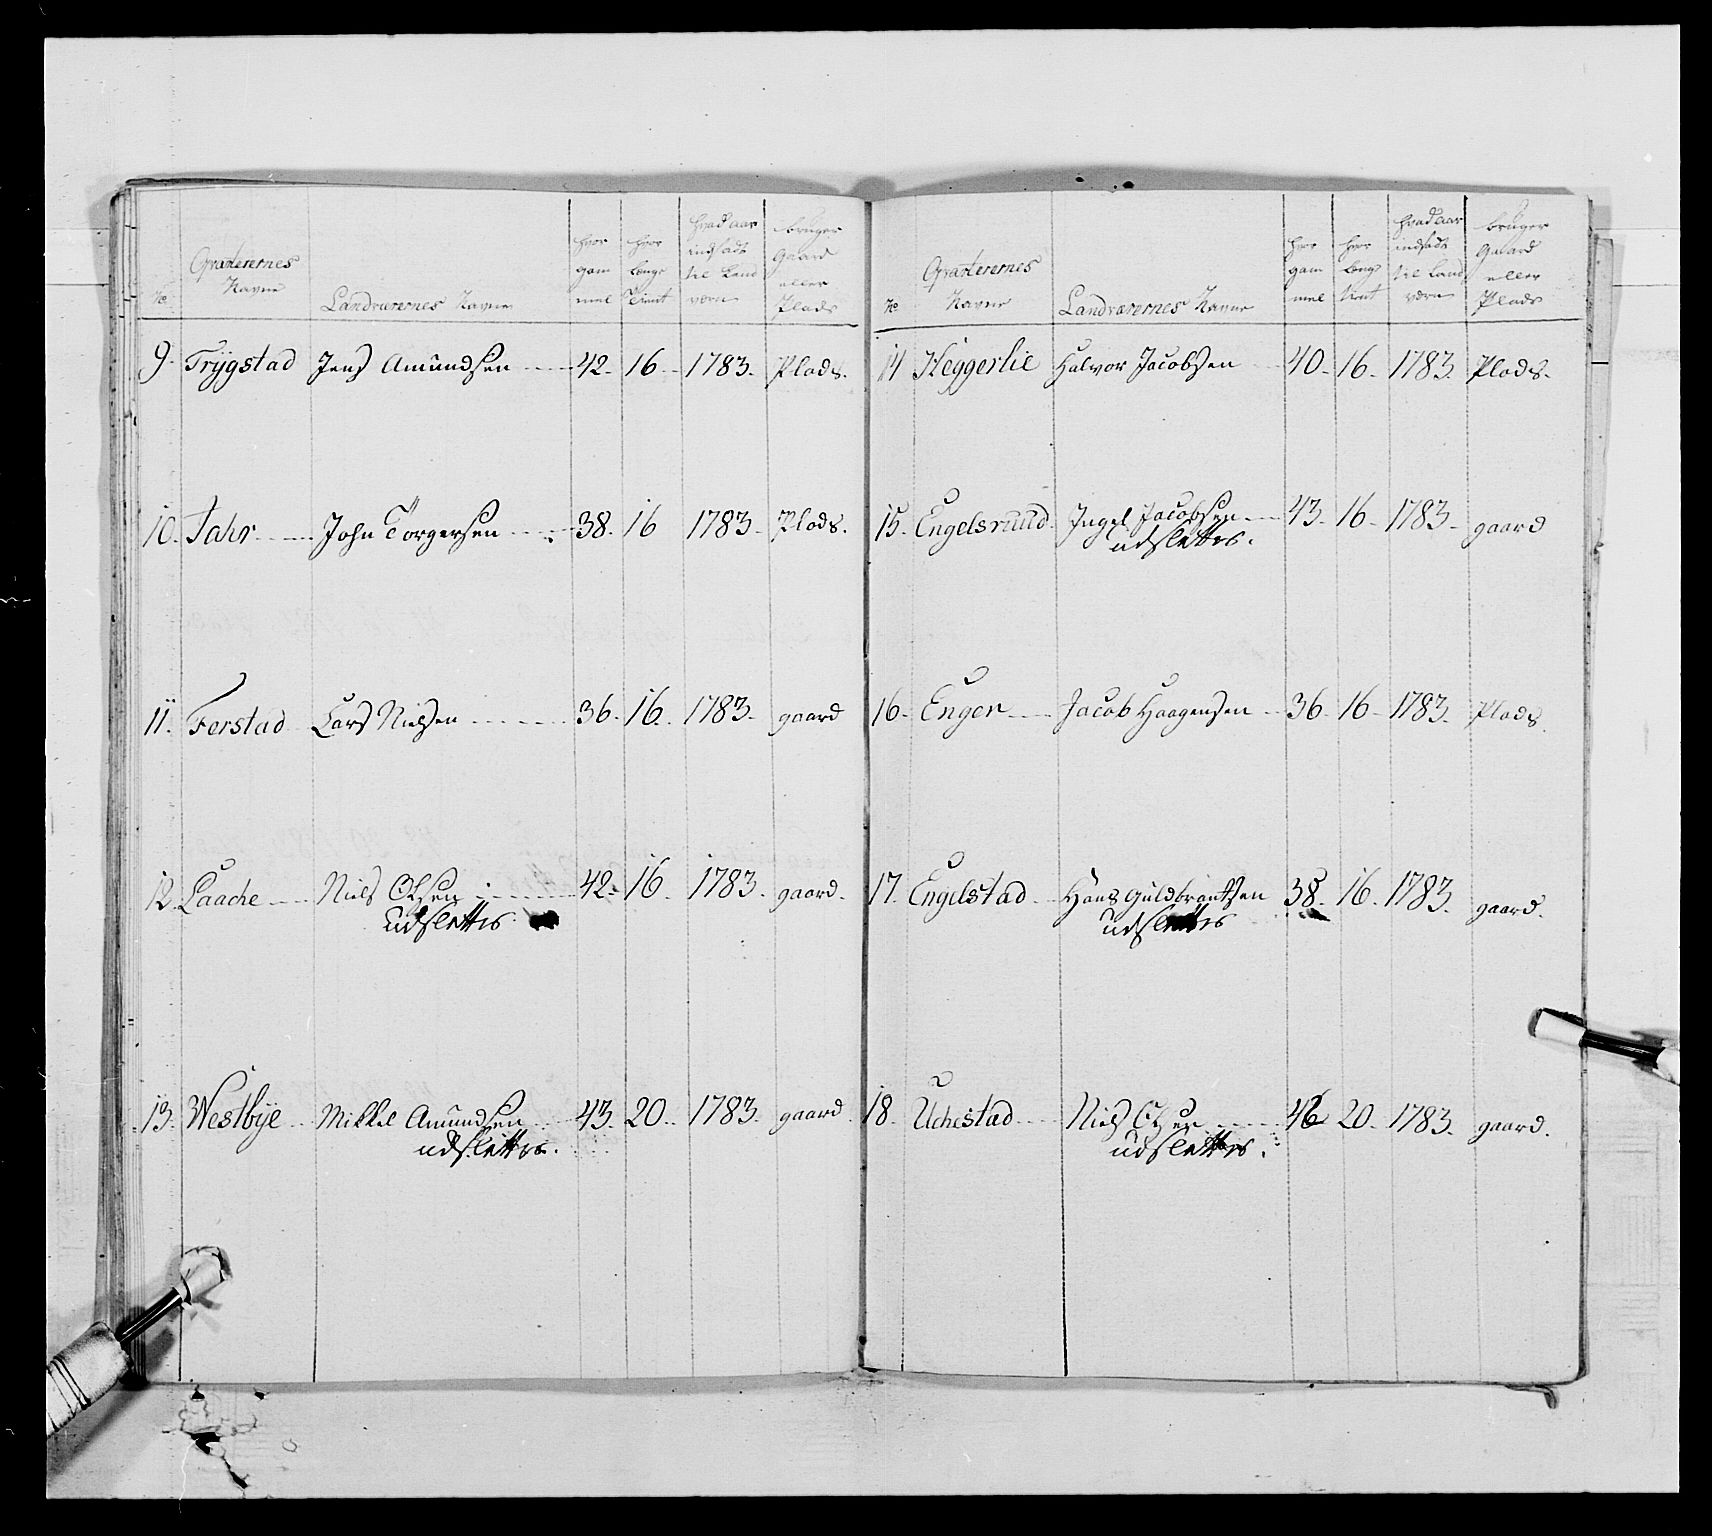 No
Qvarterernes
Navne
Landværernes Navne
hvor
gam
mel
hvor
længe
tient
hvad aar
indsadt
til Land
værn
bruger
Gaard
eller
Plads
9. Trygstad Jens Amundsen 42. 16 1783. Plads.
10. Fahr John Torgersen 38. 16 1783. Plads.
11. Ferstad Lars Nielsen 36. 16. 1783. gaard
12. Laache Niels Olsen 42. 16. 1783. gaard.
udslettes
13. Westbye Mikkel Amundsen 43. 20. 1783. gaard
udslettes.
No
Qvarterernes
Navne
Landværernes Navne
hvor
gam
mel
hvor
læng
tient
hvad aar
indsadt
til Land
værn
bruger
Gaard
eller
Plads
14 Heggerlie Halvor Jacobsen 40. 16. 1783. Plads.
15. Engelsruud Ingel Jacobsen 43. 16. 1783. gaard
udslettes.
16. Enger Jacob Haagensen 36. 16. 1783. Plads.
17. Engelstad Hans Guldbrantsen 38. 16. 1783. gaard.
udslettes
18. Uchestad Niels Olsen 46 20. 1783. gaard.
udslettes.